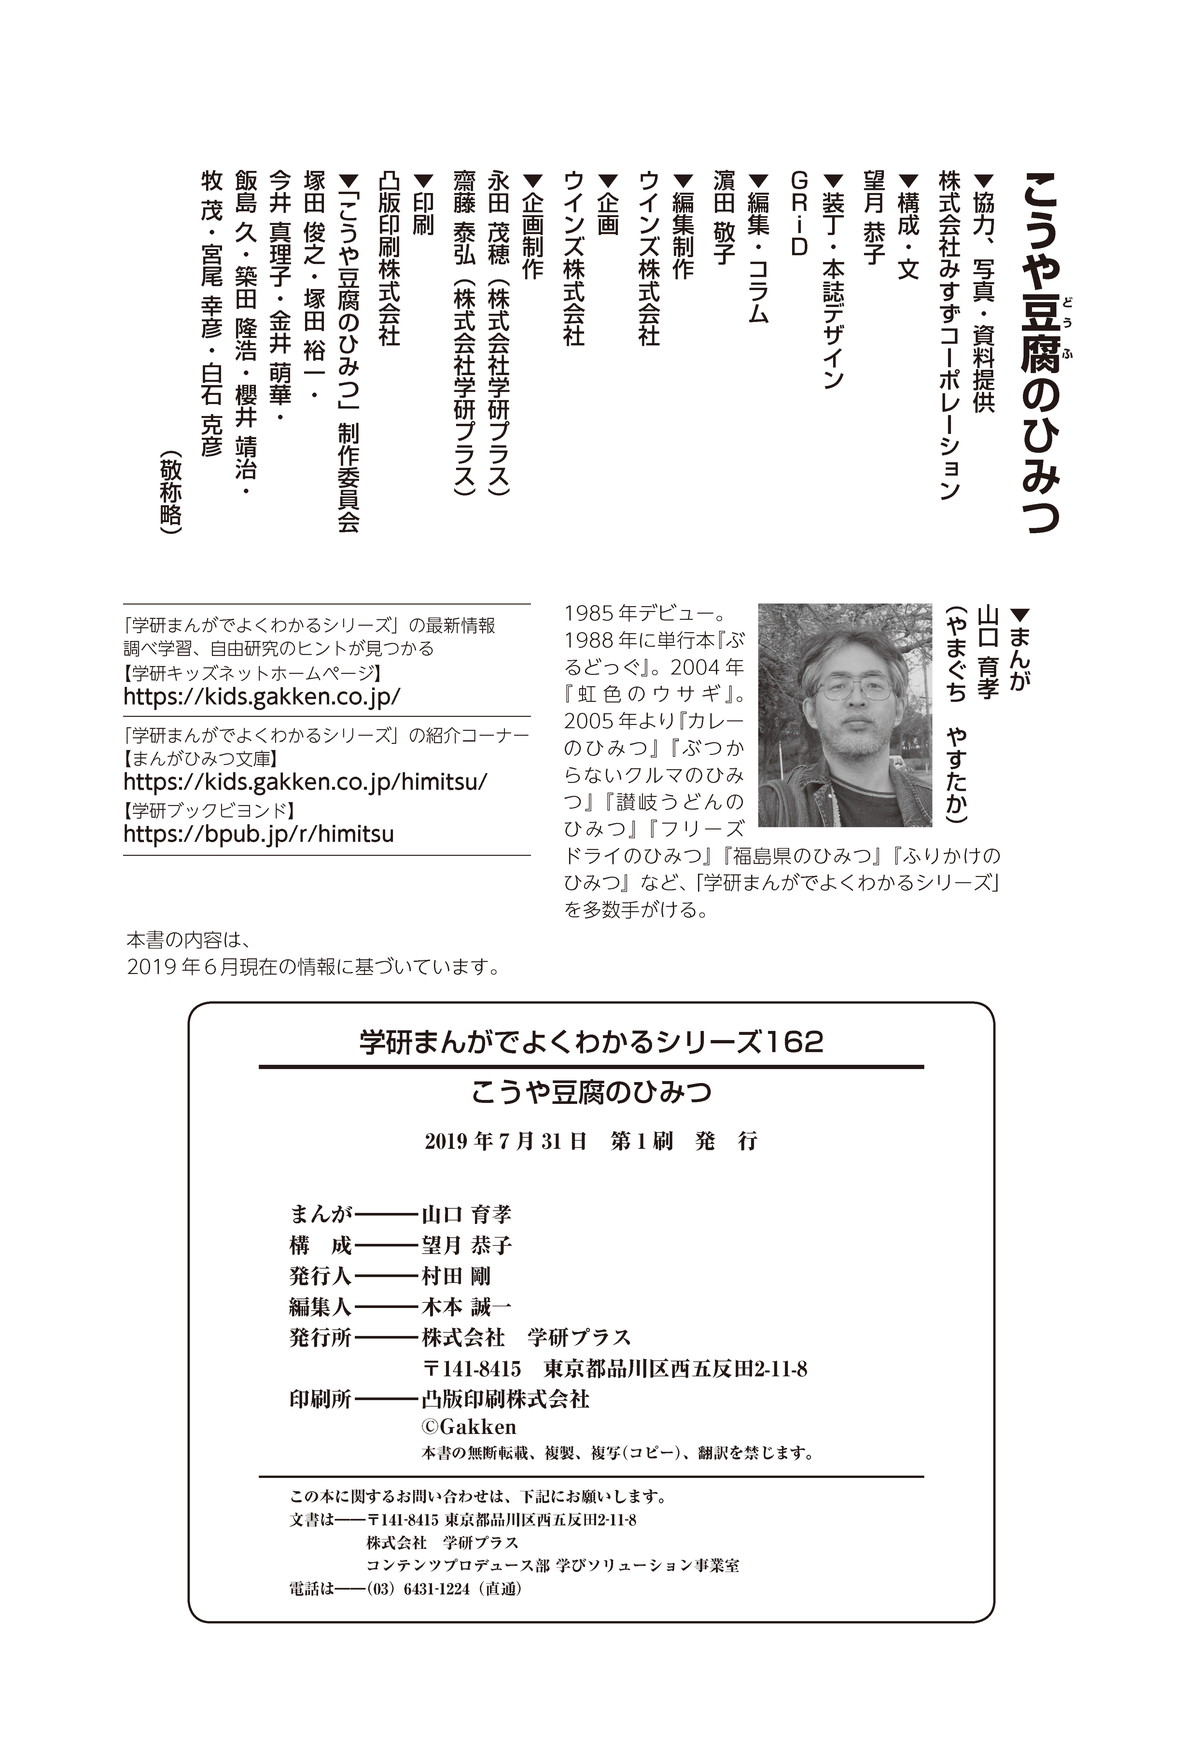 こうや豆腐のひみつ
どうふ
▼協力、写真・資料提供
株式会社みすずコーポレーション
▼構成・文
望月 恭子
▼装丁・本誌デザイン
GRiD
▼編集・コラム
濱田 敬子
▼編集制作
ウインズ株式会社
▼企画
ウインズ株式会社
▼企画制作
永田 茂穂（株式会社学研プラス）
齋藤 泰弘（株式会社学研プラス）
▼印刷
凸版印刷株式会社
▼「こうや豆腐のひみつ」制作委員会
塚田 俊之・塚田 裕一・
今井 真理子・金井 萌華・
飯島 久・築田 隆浩・櫻井 靖治・
牧 茂・宮尾 幸彦・白石 克彦
（敬称略）
▼まんが
山口 育孝
（やまぐち　やすたか）
1985年デビュー。
1988年に単行本『ぶ
るどっぐ』。2004年
『虹色のウサギ』。
2005年より『カレー
のひみつ』『ぶつか
らないクルマのひみ
つ』『讃岐うどんの
ひみつ』『フリーズ
ドライのひみつ』『福島県のひみつ』『ふりかけの
ひみつ』など、「学研まんがでよくわかるシリーズ」
を多数手がける。
「学研まんがでよくわかるシリーズ」の最新情報
調べ学習、自由研究のヒントが見つかる
【学研キッズネットホームページ】
https://kids.gakken.co.jp/
「学研まんがでよくわかるシリーズ」の紹介コーナー
【まんがひみつ文庫】
https://kids.gakken.co.jp/himitsu/
【学研ブックビヨンド】
https://bpub.jp/r/himitsu
本書の内容は、
2019年6月現在の情報に基づいています。
学研まんがでよくわかるシリーズ162
こうや豆腐のひみつ
2019年7月31日　第1刷　発　行
まんが―――山口 育孝
構　成―――望月 恭子
発行人―――村田 剛
編集人―――木本 誠一
発行所―――株式会社　学研プラス
〒141-8415　東京都品川区西五反田2-11-8
印刷所―――凸版印刷株式会社
©Gakken
本書の無断転載、複製、複写（コピー）、翻訳を禁じます。
この本に関するお問い合わせは、下記にお願いします。
文書は――〒141-8415 東京都品川区西五反田2-11-8
株式会社　学研プラス
コンテンツプロデュース部 学びソリューション事業室
電話は――（03）6431-1224（直通）